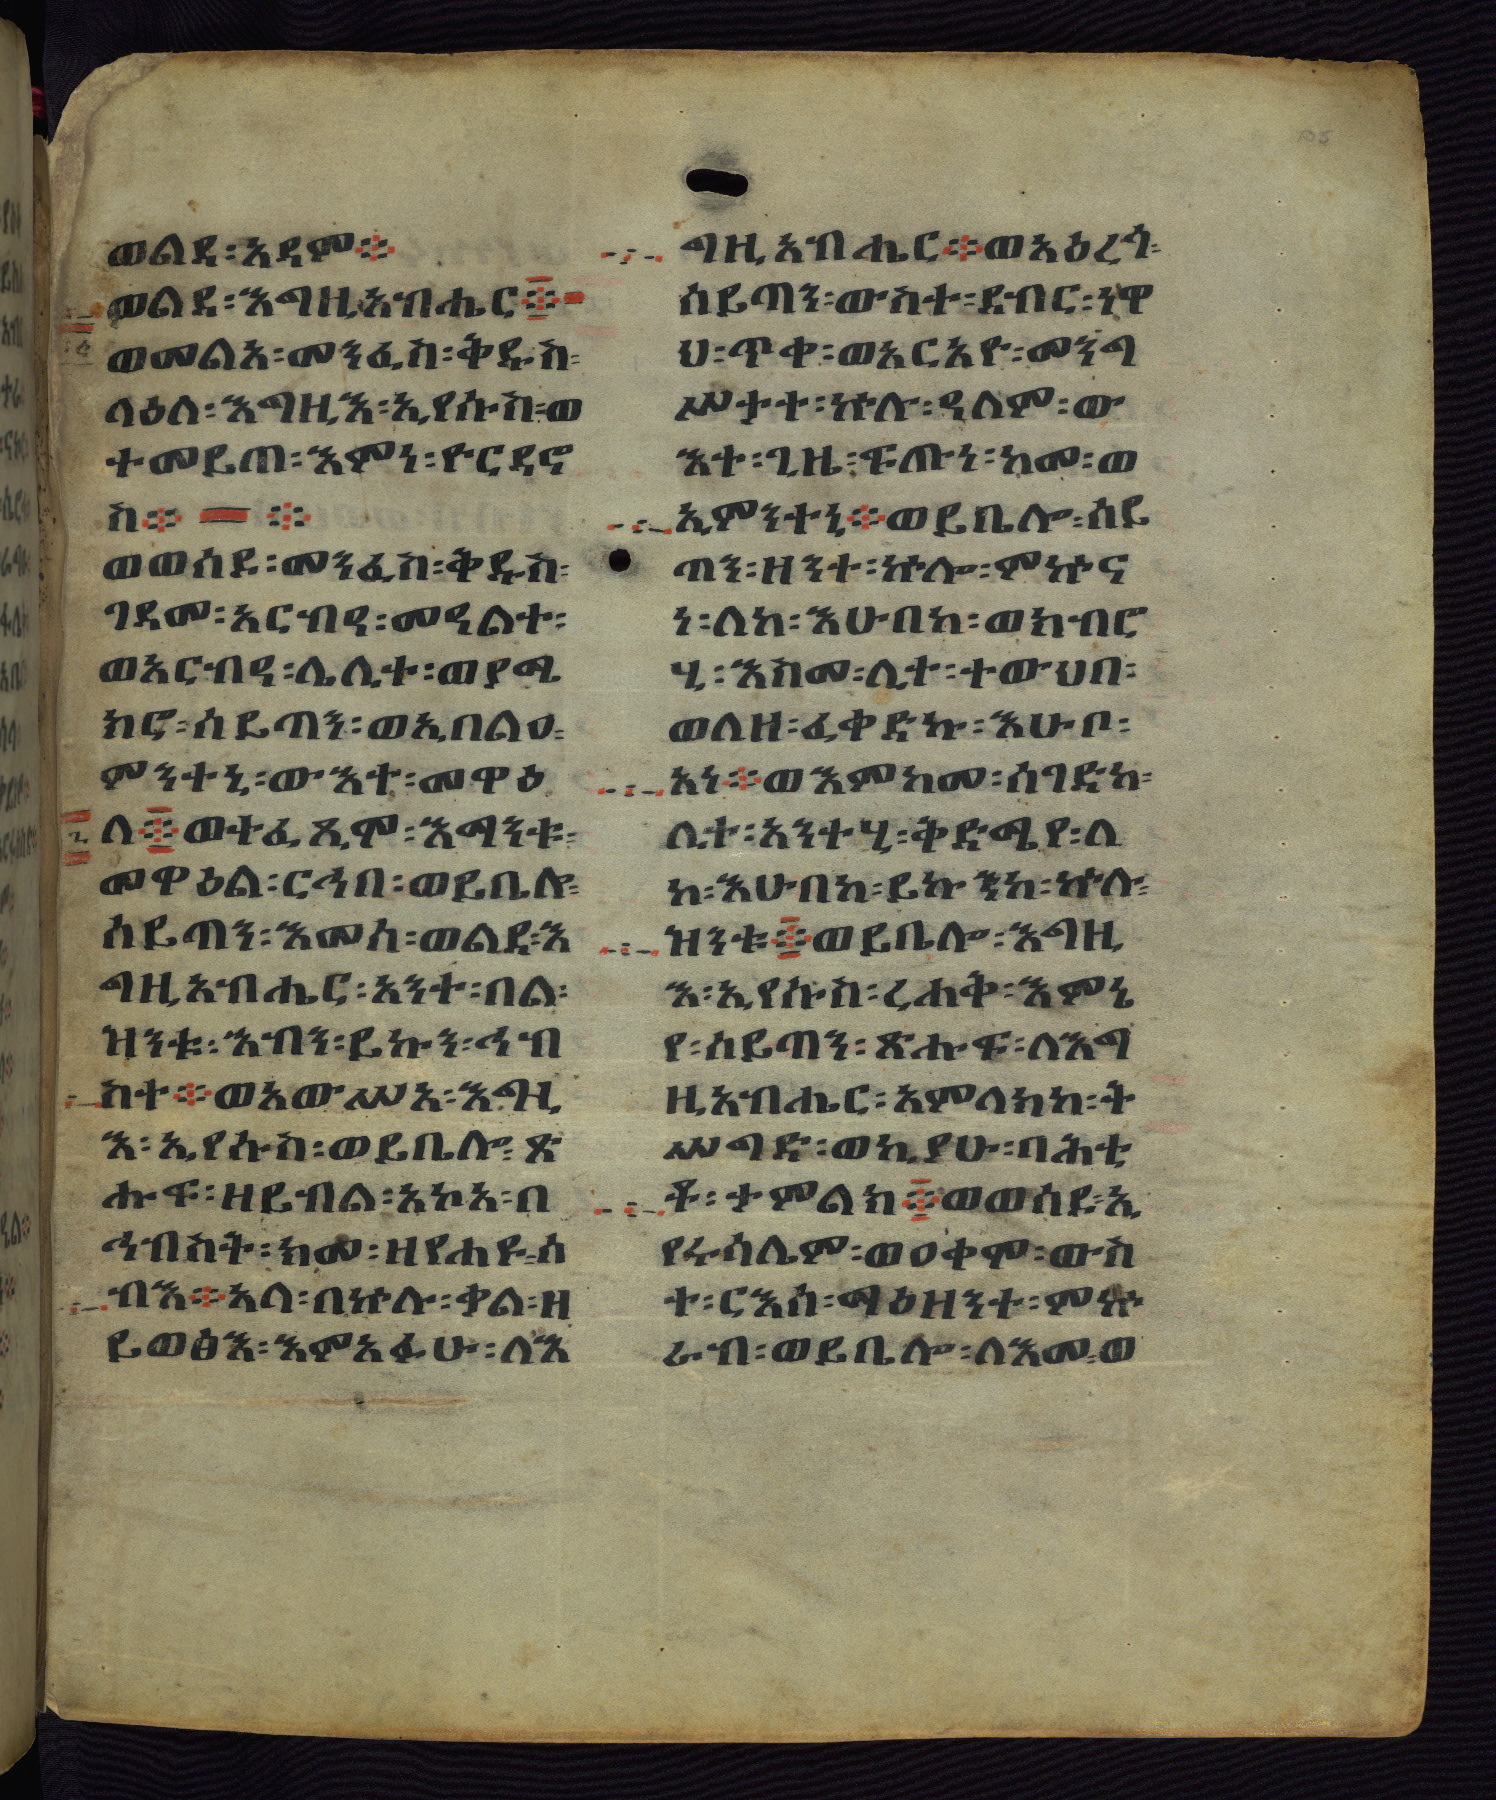 ወልደ፡አዳም፨
ወልደ፡እግዚአብሔር፨
ወመልአ፡መንፈስ፡ቅዱስ፡
ላዕለ፡እግዚእ፡ኢየሱስ፡ወ
ተመይጠ፡እምነ፡ዮርዳኖ
ስ፨ ፨
ወወሰደ፡መንፈስ፡ቅዱስ፡
ገዳመ፡አርብዓ፡መዓልተ፡
ወአርብዓ፡ሌሊተ፡ወያሜ
ክሮ፡ሰይጣን፡ወኢበልዐ፡
ምንተኒ፡ውእተ፡መዋዕ
ለ፨ወተፈጺሞ፡እማንቱ፡
መዋዕል፡ርኅበ፡ወይቤሎ፡
ሰይጣን፡እመሰ፡ወልደ፡እ
ግዚአብሔር፡አንተ፡በል፡
ዝንቱ፡እብን፡ይኩን፡ኅብ
ስተ፨ወአውሥአ፡እግዚ
እ፡ኢየሱስ፡ወይቤሎ፡ጽ
ሑፍ፡ዘይብል፡አኮአ፡በ
ኅብስት፡ክመ፡ዘየሐዩ፡ሰ
ብእ፨አላ፡በኵሉ፡ቃል፡ዘ
ይወፅእ፡እምአፉሁ፡ለእ
ግዚአብሔር፨ወአዕረጎ፡
ሰይጣን፡ውስተ፡ደብር፡ነዋ
ህ፡ጥቀ፡ወአርአዮ፡መንግ
ሥታተ፡ኵሉ፡ዓለም፡ው
እተ፡ጊዜ፡ፍጡነ፡ከመ፡ወ
ኢምንተኒ፨ወይቤሎ፡ሰይ
ጣን፡ዘንተ፡ኵሎ፡ምኵና
ነ፡ለከ፡እሁበከ፡ወክብሮ
ሂ፡እስመ፡ሊተ፡ተውህበ፡
ወለዘ፡ፈቀድኩ፡እሁቦ፡
አነ፨ወእምከመ፡ሰገድከ፡
ሊተ፡አንተሂ፡ቅድሜየ፡ለ
ከ፡እሁበከ፡ይኩንከ፡ኵሉ፡
ዝንቱ፨ወይቤሎ፡እግዚ
እ፡ኢየሱስ፡ረሐቅ፡እምኔ
የ፡ሰይጣን፡ጽሑፍ፡ለእግ
ዚአብሔር፡አምላክከ፡ት
ሥግድ፡ወኪያሁ፡ባሕቲ
ቶ፡ታምልክ፨ወወሰደ፡ኢ
የሩሳሌም፡ወዐቀሞ፡ውስ
ተ፡ርእሰ፡ማዕዘንተ፡ምኵ
ራብ፡ወይቤሎ፡ለእመ፡ወ